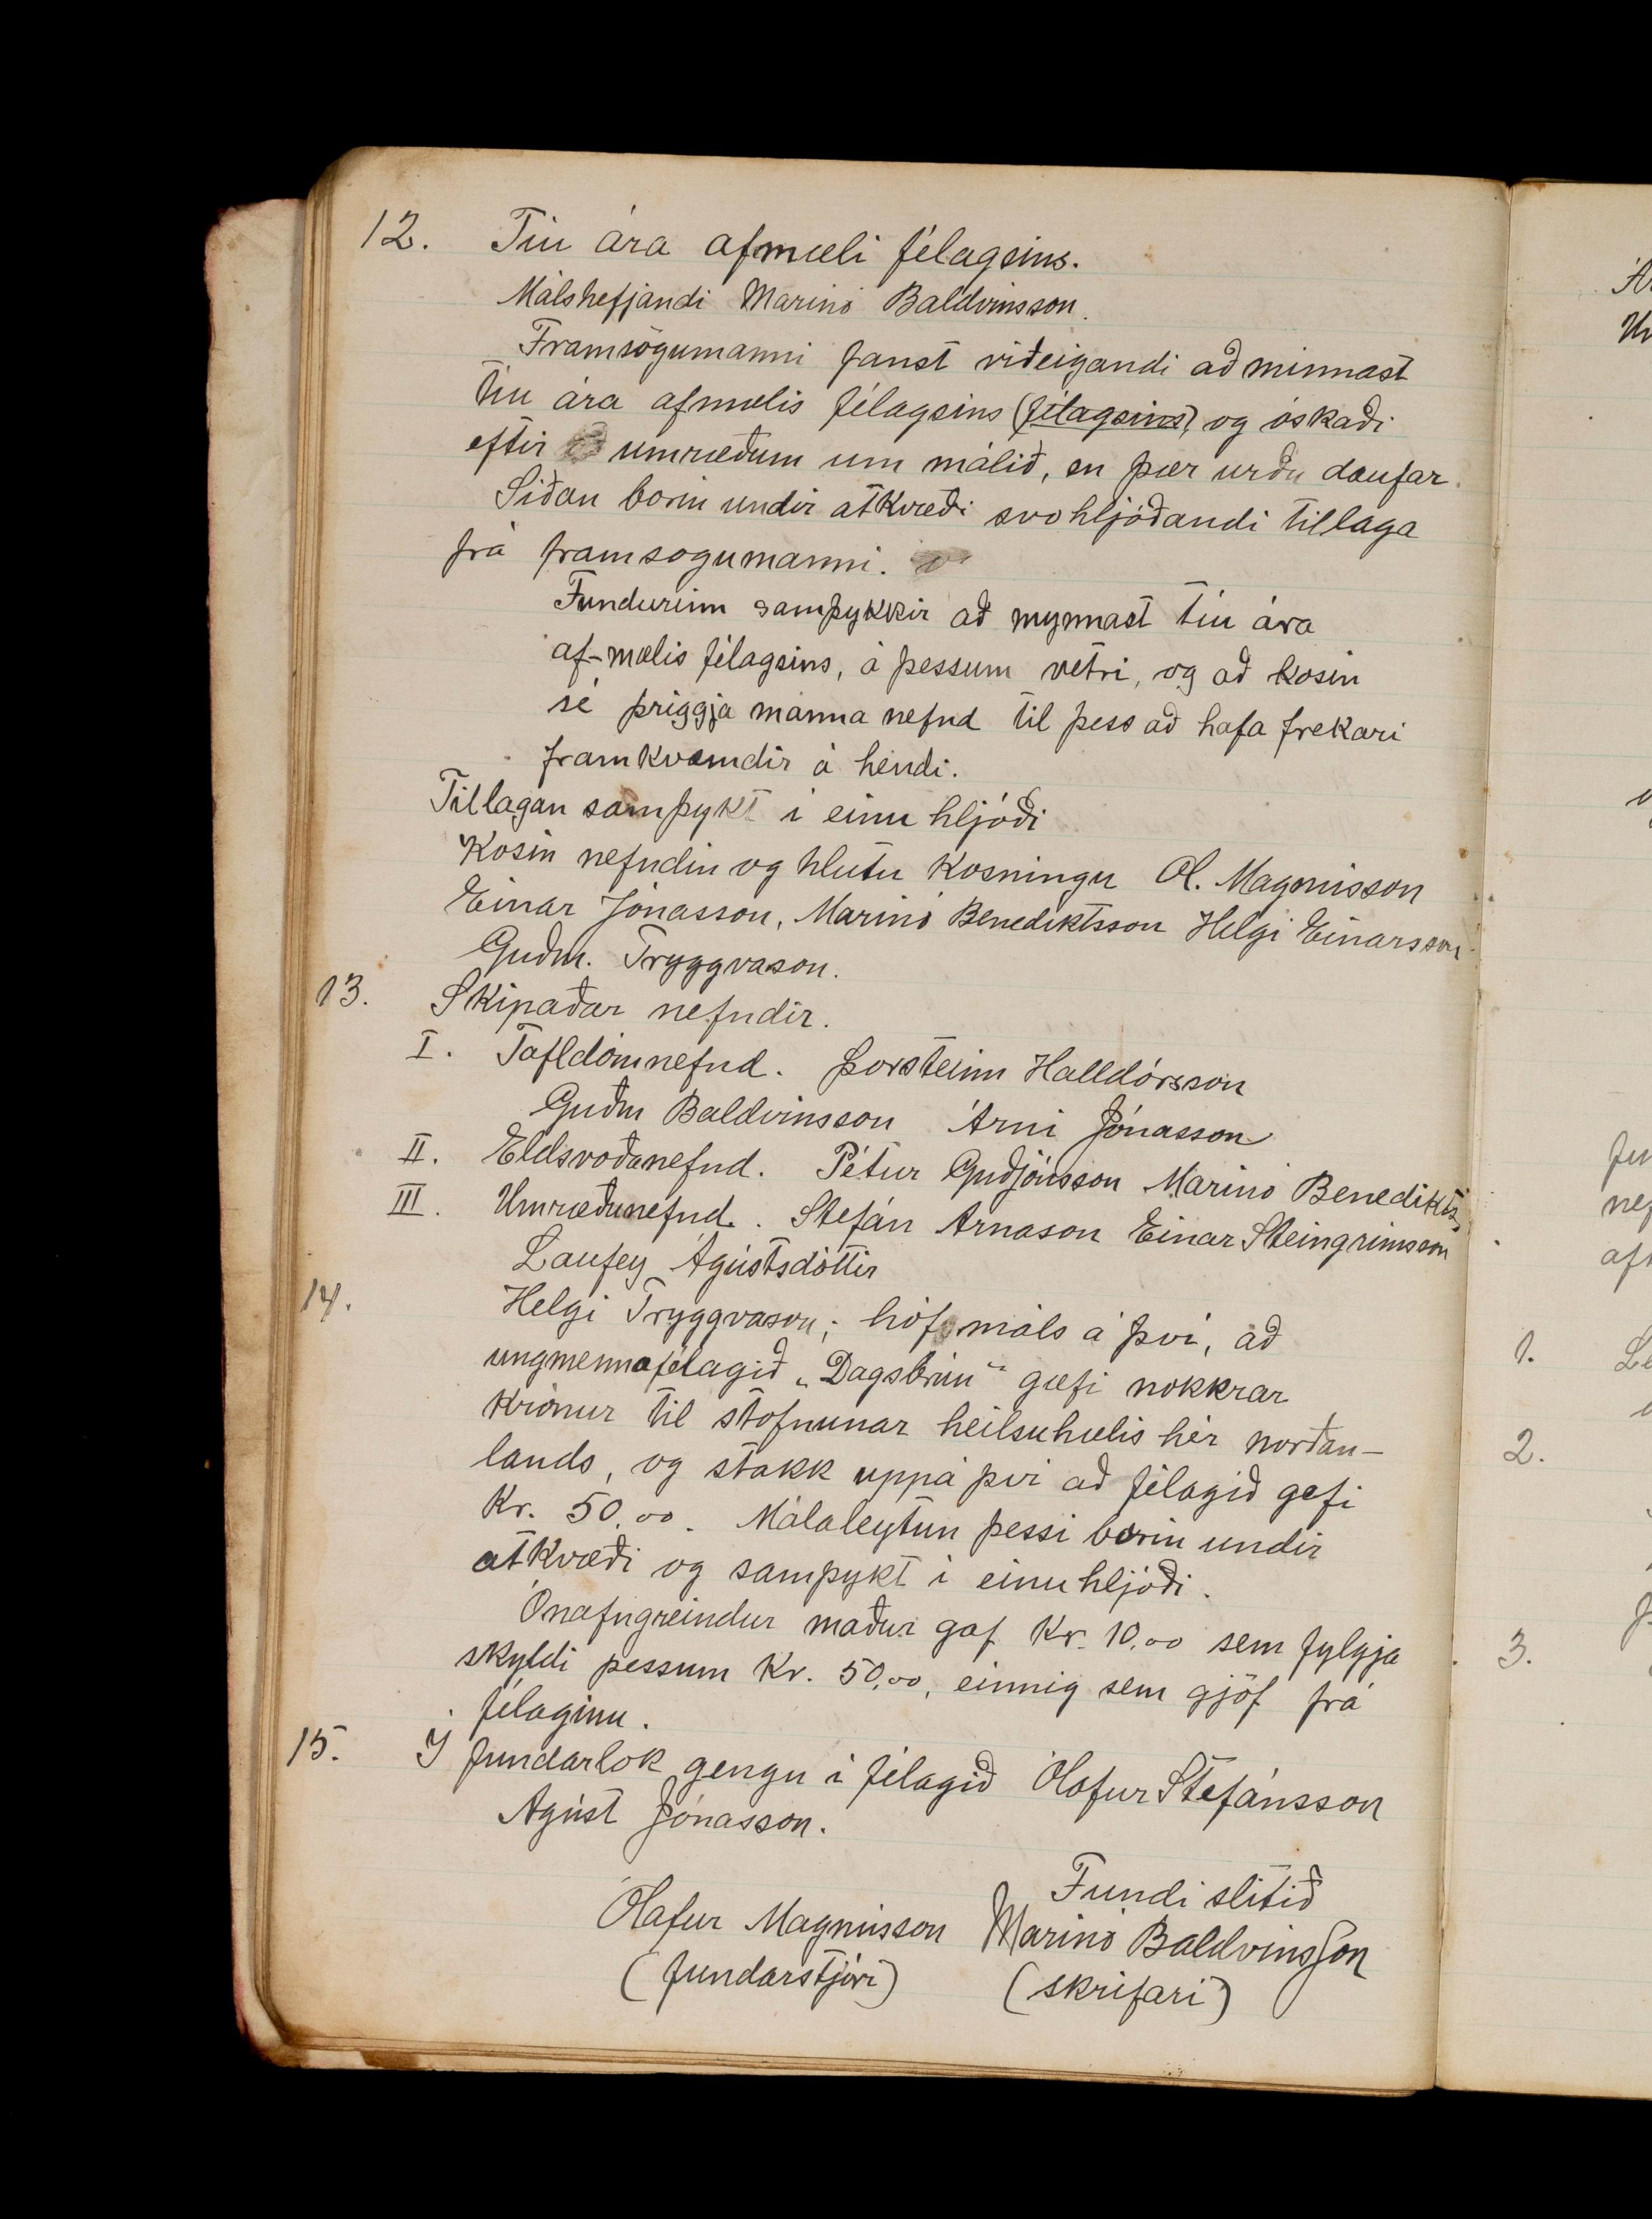 12. Tíu ára afmæli félagsins.
Málshefjandi Marinó Baldvinsson.
Framsögumanni fanst viðeigandi að minnast
tíu ára afmælis félagsins (félagsins), og óskaði
eftir umræðum um málið, en þær urðu daufar.
Síðan borin undir atkvæði svohljóðandi tillaga
frá framsogumanni.
Fundurinn samþykkir að mynnast tíu ára
af-mælis félagsins, á þessum vetri, og að kosin
sé þriggja manna nefnd til þess að hafa frekari
framkvæmdir á hendi.
Tillagan samþykt í einu hljóði
Kosin nefndin og hlutu kosningu Ól. Magnússon
Einar Jónasson, Marinó Benediktsson Helgi Einarsson
Guðm. Tryggvason.
13. Skipaðar nefndir.
I. Tafldómnefnd. Þorsteinn Halldórsson
Guðm Baldvinsson Árni Jónasson
II. Eldsvoðanefnd. Pétur Guðjónsson Marinó Benedikts.
III. Umræðunefnd. Stefán Árnason Einar Steingrímsson
Laufey Ágústsdóttir
14. Helgi Tryggvason; hóf máls á því, að
ungmennafélagið „Dagsbrún" gæfi nokkrar
krónur til stofnunar heilsuhælis hér norðan-
lands, og stakk uppá því að félagið gefi
Kr. 50,00. Málaleytun þessi borin undir
atkvæði og samþykt í einu hljóði.
Ónafngreindur maður gaf Kr. 10,00 sem fylgja
skyldi þessum Kr. 50,00, einnig sem gjöf frá
félaginu.
15. Í fundarlok gengu í félagið Ólafur Stefánsson
Ágúst Jónasson.
Fundi slitið
Ólafur Magnússon Marinó Baldvinsson
(fundarstjóri) (skrifari)
1.
2.
3.